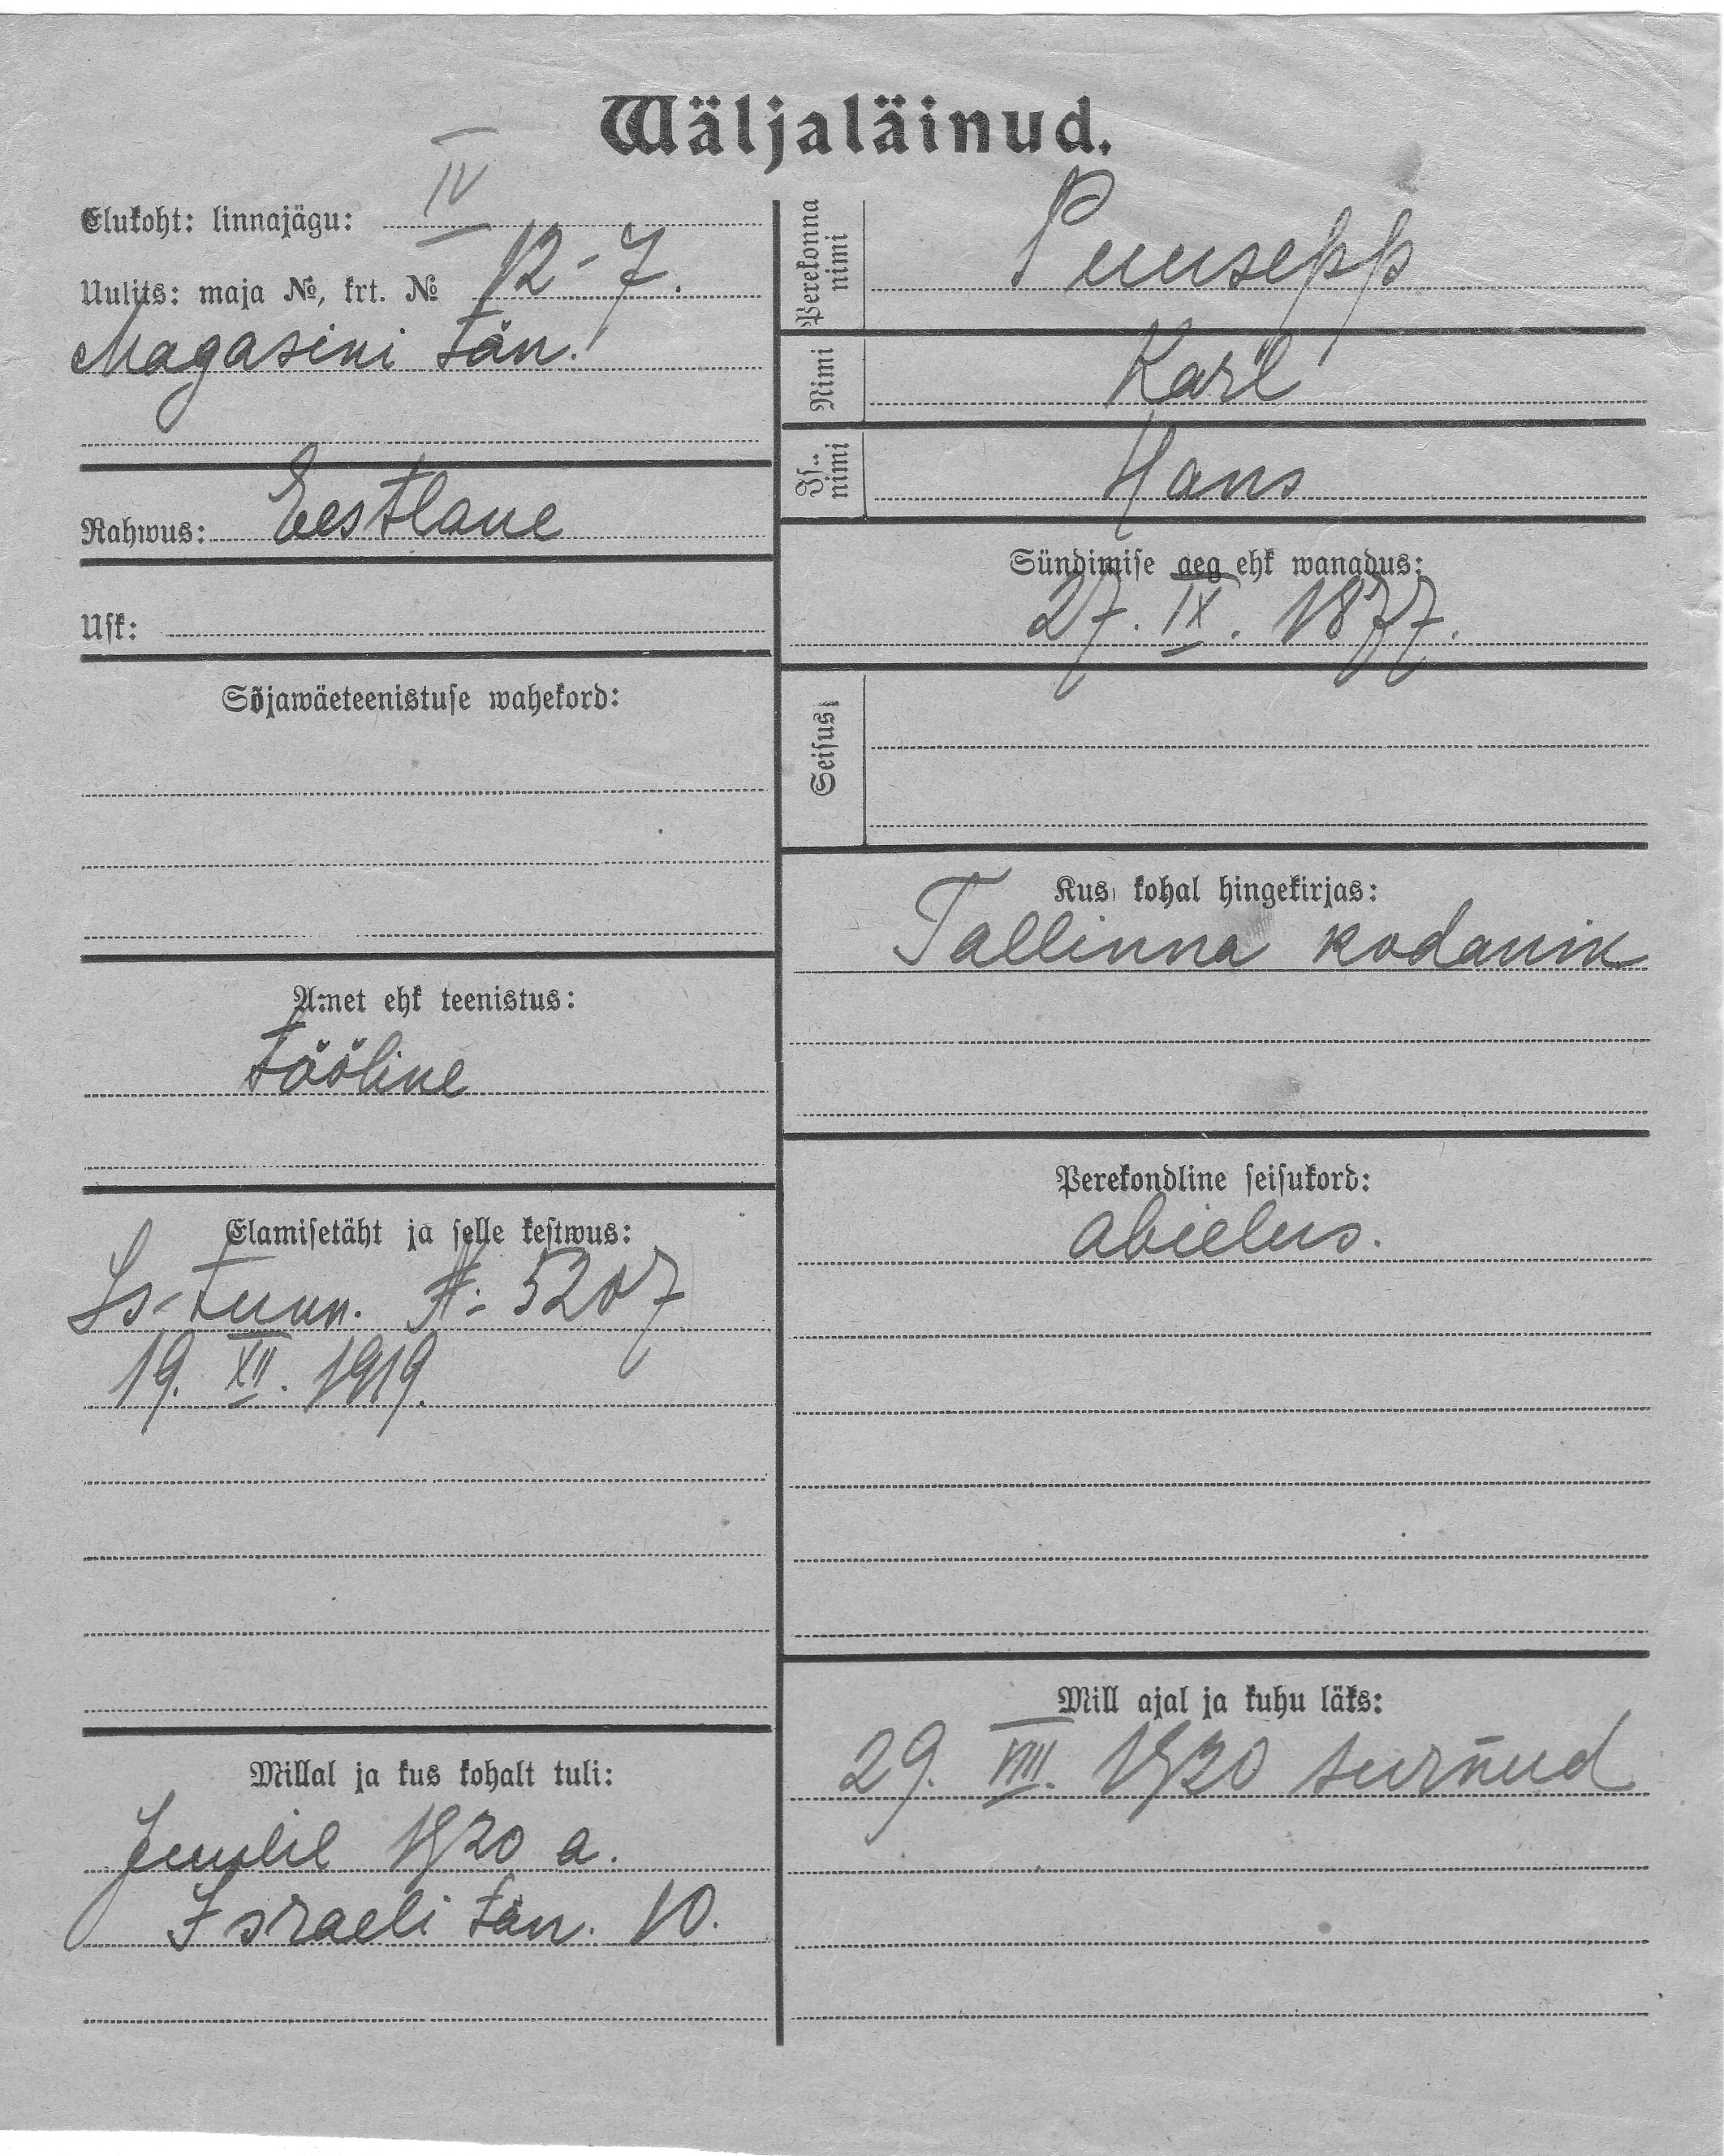 Wäljaläinud.
Elukoht: linnajägu: IV
Uulits: maja №, krt. № 12-7.
Magasini tän.
Rahwus: Eestlane
Usk:
Sõjawäeteenistuse wahekord:
Amet ehk teenistus:
tööline
Elamisetäht ja selle kestwus:
Is-tunn. №: 5207
19. XII. 1919.
Millal ja kus kohalt tuli:
1920 a.
Israeli tän. 10.
Perekonna nimi
Puusepp
Nimi
Karl
Is. nimi
Hans
Sündimise aeg ehk wanadus:
27. IX. 1877.
Seisus
Kus kohal hingekirjas:
Tallinna kodanik
Perekondline seisukord:
abielus.
Mill ajal ja kuhu läks:
29. VIII. 1920 surnud